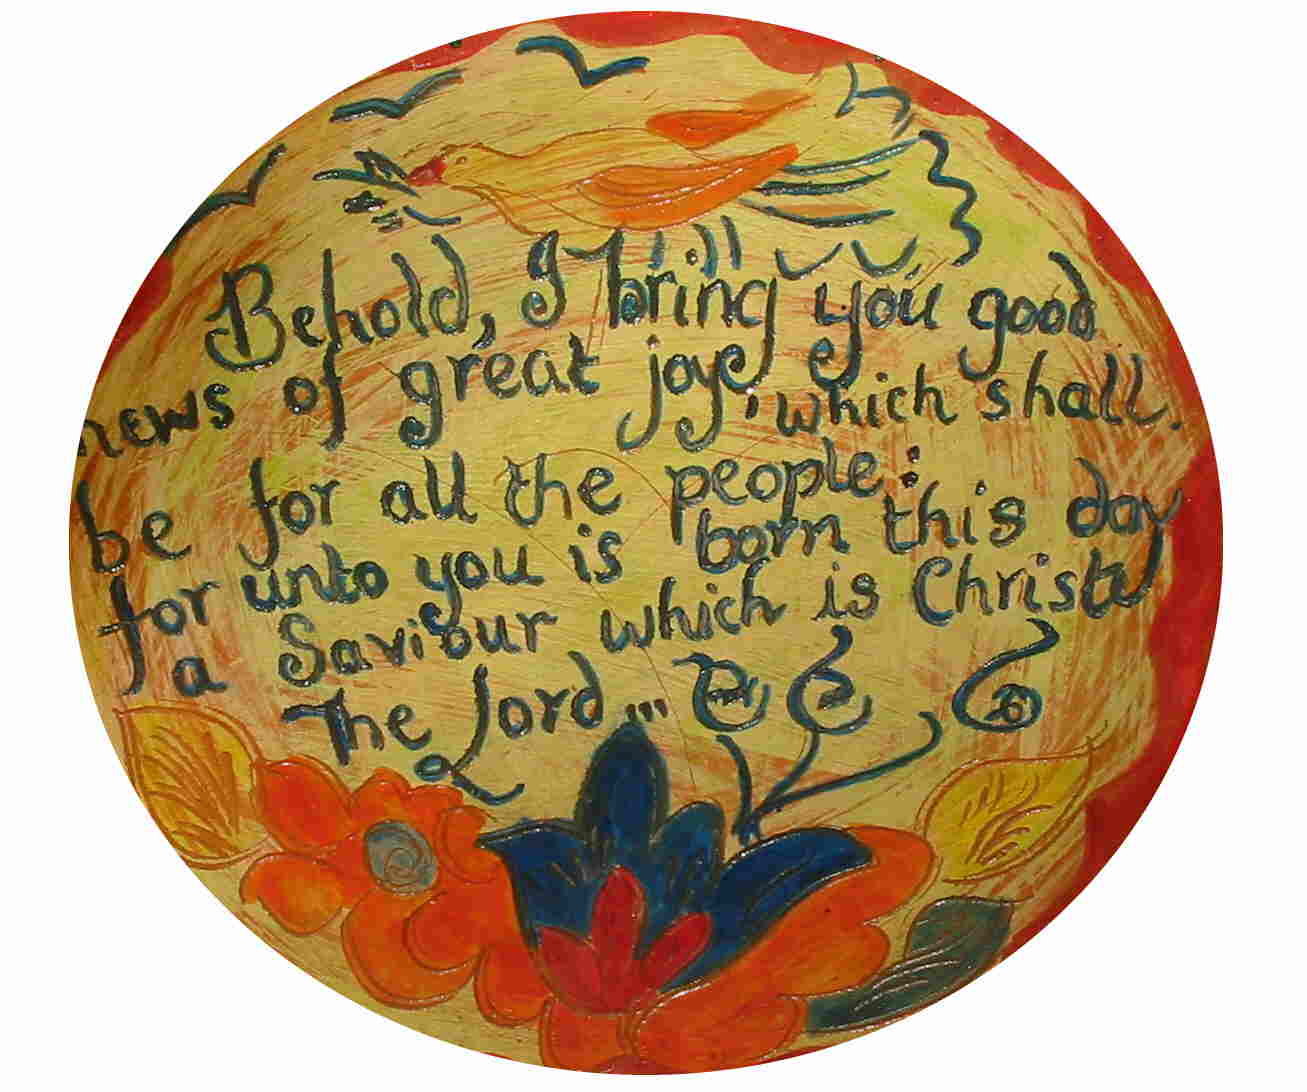 Behold, I bring you good
news of great joye, which shall.
be for all the people:
for unto you is born this day
a Saviour which is Christ
The Lord...